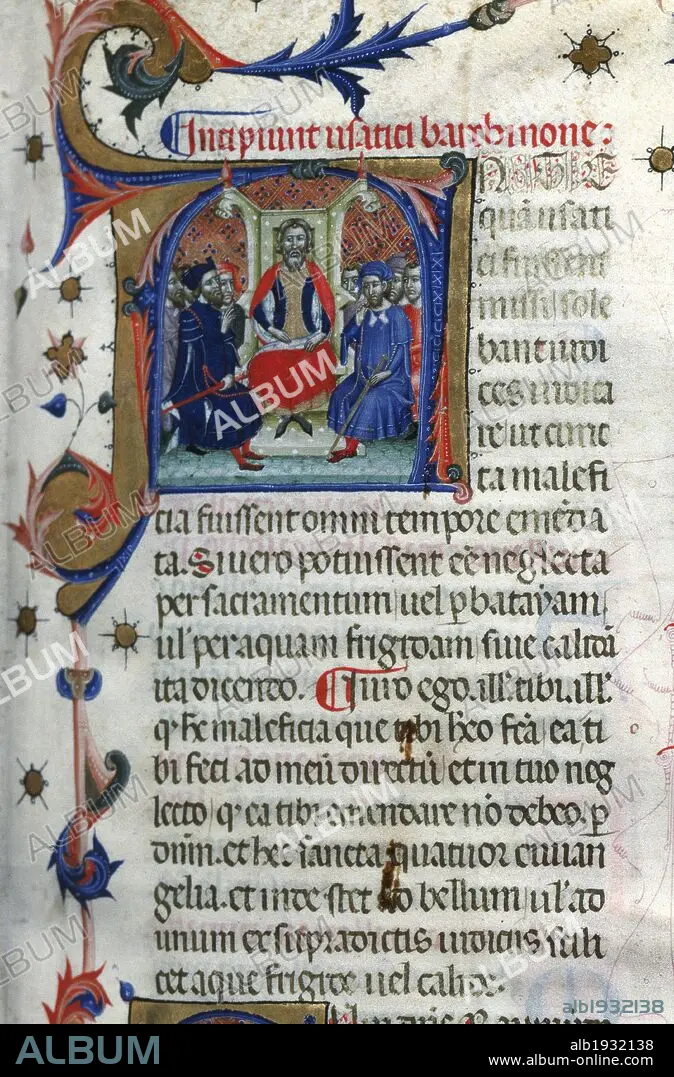 Incipiunt usatici barchinone:
ANTE
quā usati
ci fuissent
missi sole
bant iudi
ces iudica
re ut cunc
ta malefi
cia fuissent omni tempore emēda
ta. Si uero potuissent eē neglecta
per sacramentum uel ꝑ batayam
ul' per aquam frigidam siue calidā
ita dicendo. Iuro ego. ill'. tibi. ill'.
maleficia que tibi
bi feci ad meū directū et in tuo neg
lecto ea tibi emendare nō debeo. ꝑ
dm̄. et hec sancta quatuor euuan
gelia. et inde stet ad bellum ul' ad
unum ex supradictis iudiciis sili
cet aque frigide uel calide.
ALBUM
alb1932138
alb1932138
www.album-online.com